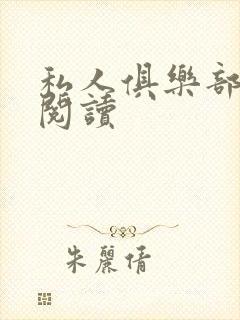 私人俱樂部
閱讀
朱麗倩